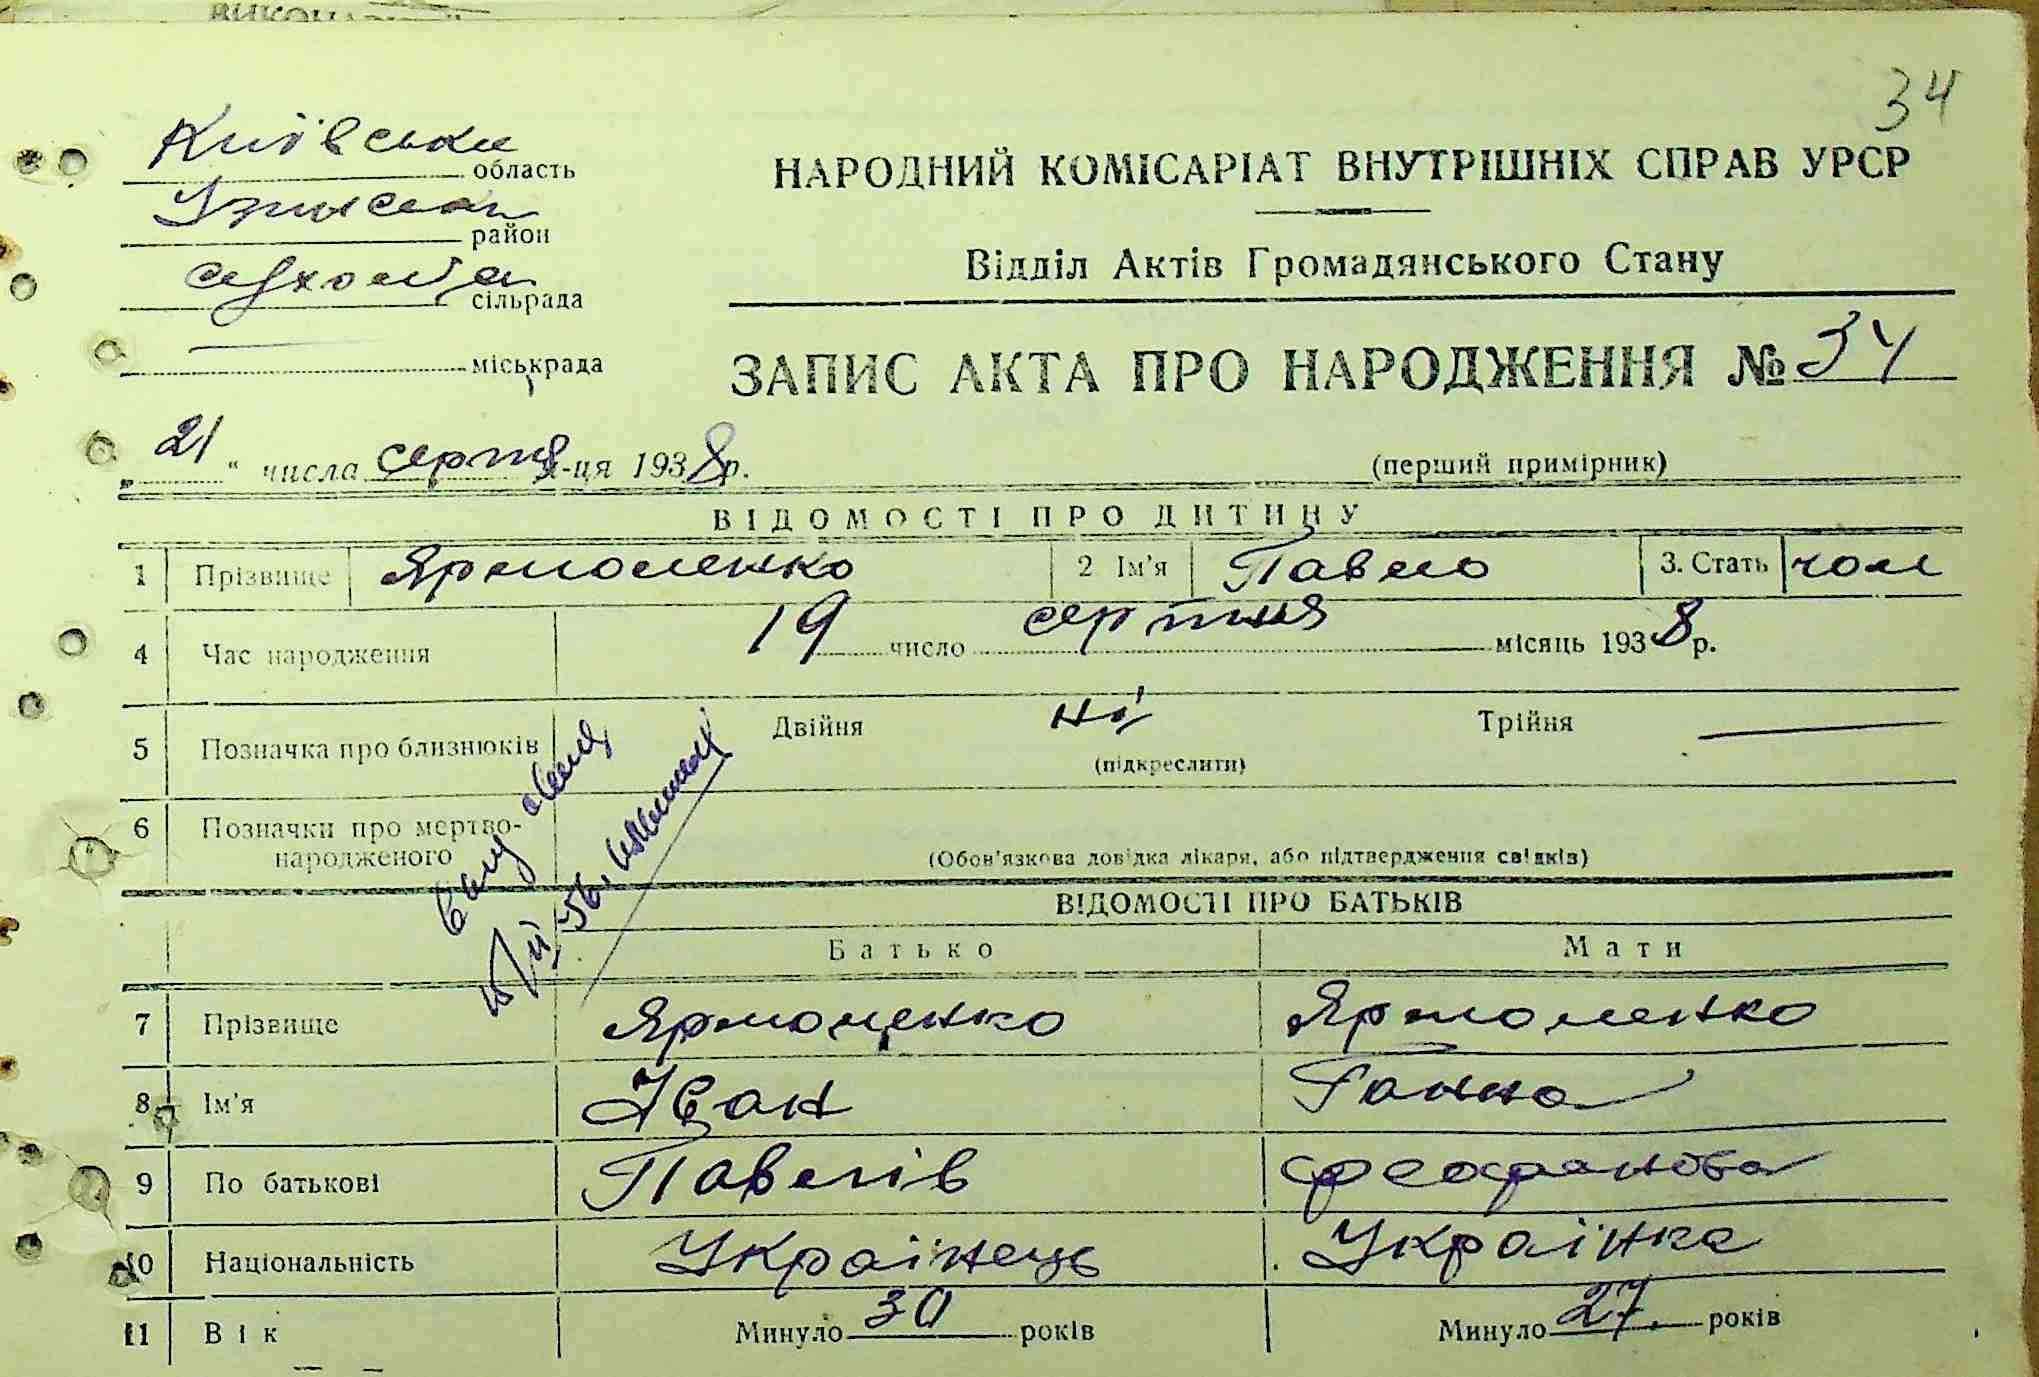 34
Київська область
район
сільрада
міськрада
НАРОДНИЙ КОМІСАРІАТ ВНУТРІШНІХ СПРАВ УРСР
Відділ Актів Громадянського Стану
ЗАПИС АКТА ПРО НАРОДЖЕННЯ № 34
„21“ числа серпня м-ця 1938р.
(перший примірник)
ВІДОМОСТІ ПРО ДИТИНУ
1 Прізвище Ярмоленко 2 Ім'я Павло 3. Стать чол
4 Час народження 19 число серпня місяць 1938р.
5 Позначка про близнюків Двійня ні Трійня —
(підкреслити)
6 Позначки про мертво-
народженого
(Обов'язкова довідка лікаря, або підтвердження свідків)
ВІДОМОСТІ ПРО БАТЬКІВ
Батько Мати
7 Прізвище Ярмоленко Ярмоленко
8 Ім'я Іван Ганна
9 По батькові Павлів Феофанова
10 Національність Українець Українка
11 Вік Минуло 30 років Минуло 27 років